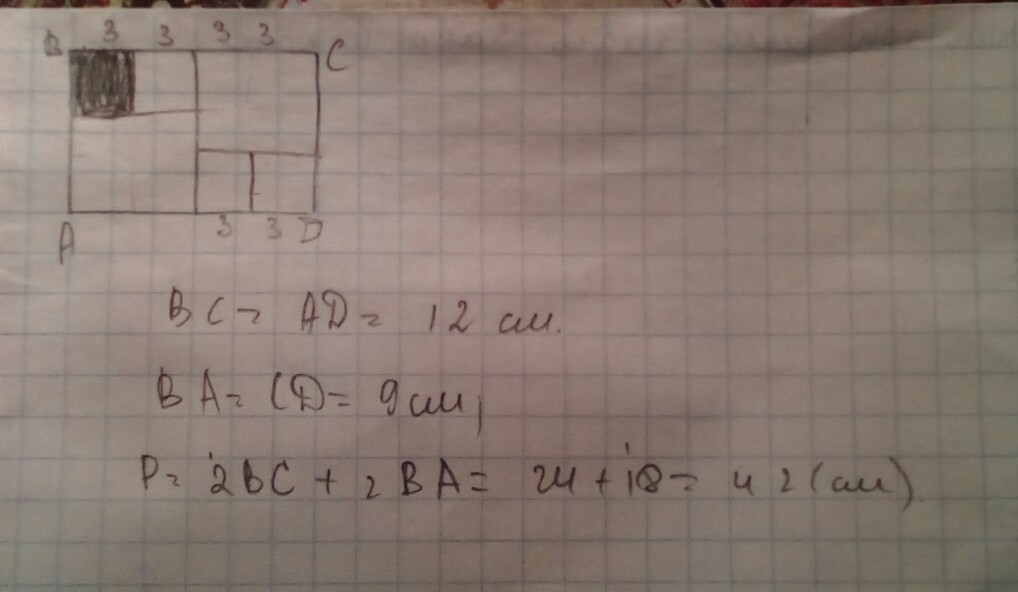 B 3 3 3 3 C
A 3 3 D
BC = AD = 12 см.
BA = CD = 9 см,
P = 2BC + 2BA = 24 + 18 = 42 (см)